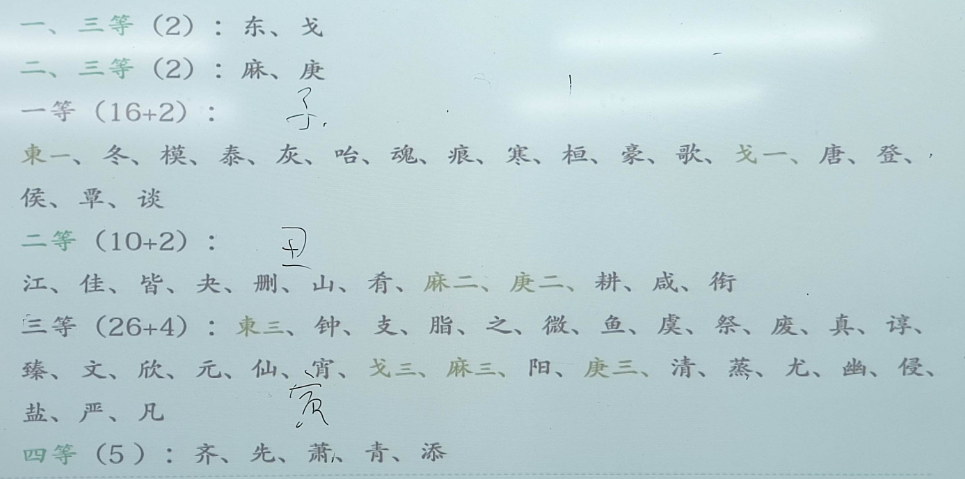 一、三等（2）：东、戈
二、三等（2）：麻、庚
一等（16+2）：
子
東一、冬、模、泰、灰、咍、魂、痕、寒、桓、豪、歌、戈一、唐、登、
侯、覃、谈
二等（10+2）：
丑
江、佳、皆、夬、删、山、肴、麻二、庚二、耕、咸、衔
三等（26+4）：東三、钟、支、脂、之、微、鱼、虞、祭、废、真、谆、
臻、文、欣、元、仙、宵、戈三、麻三、阳、庚三、清、蒸、尤、幽、侵、
寅
盐、严、凡
四等（5 ）：齐、先、萧、青、添